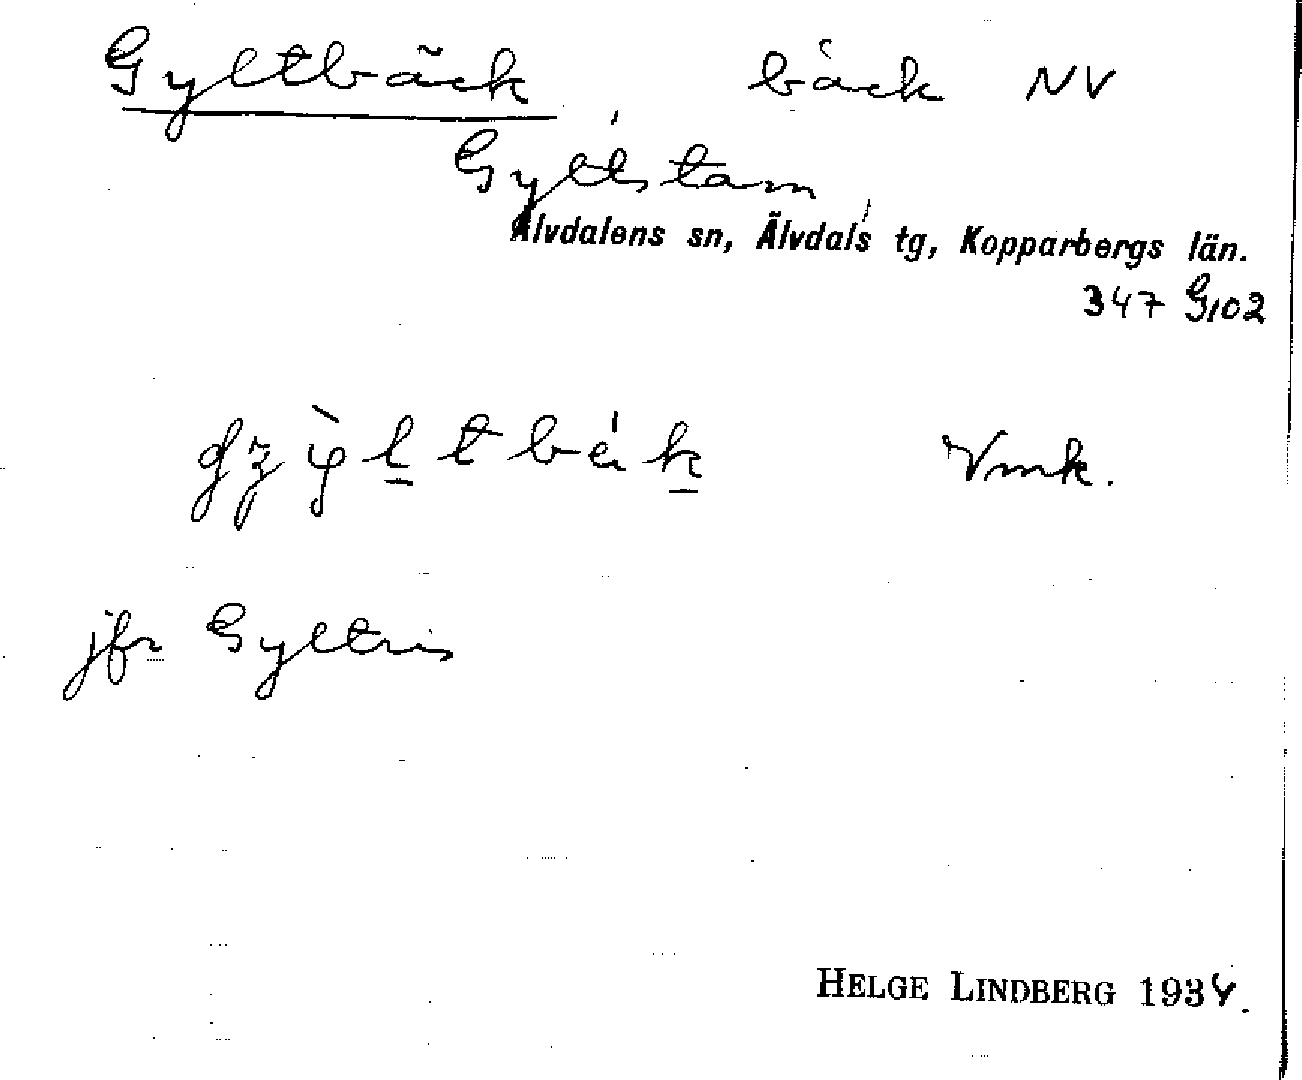 Gyltbäck bäck NV
Gyltstam
Älvdalens sn, Älvdals tg, Kopparbergs län.
347 G102
Vmk.
jfr Gyltris
HELGE LINDBERG 1934.